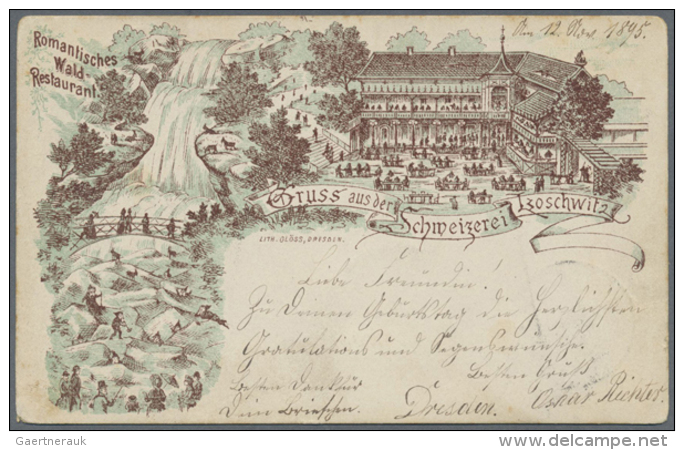 Romantisches
Wald-
Restaurant.
Am 12. Nov. 1895.
Gruss aus der
Schweizerei
Loschwitz
LITH. GLÖSS, DRESDEN.
Liebe Freundin!
Zu Deinen Geburtstag die Herzlichsten
Gratulations und Segenswünsche.
Besten Dank für
Dein Briefchen.
Besten Gruß
Dresden.
Oskar Richter.
Gaertnerauk
www.delcampe.net